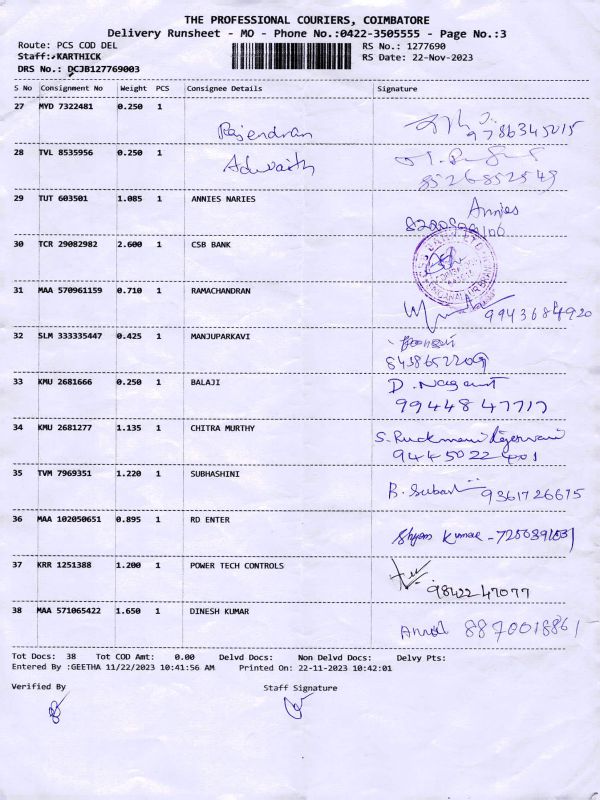 THE PROFESSIONAL COURIERS, COIMBATORE
Delivery Runsheet - MO - Phone No.:0422-3505555 - Page No.:3
Route: PCS COD DEL RS No.: 1277690
Staff: KARTHICK RS Date: 22-Nov-2023
DRS No.: DCJB127769003
S No Consignment No Weight PCS Consignee Details Signature
27 MYD 7322481 0.250 1
Rajendran 9786345215
28 TVL 8535956 0.250 1
Adwaith 8526852549
29 TUT 603501 1.085 1 ANNIES NARIES
Annies
30 TCR 29082982 2.600 1 CSB BANK
31 MAA 570961159 0.710 1 RAMACHANDRAN
9943684920
32 SLM 333335447 0.425 1 MANJUPARKAVI
8438652209
33 KMU 2681666 0.250 1 BALAJI D. Nagant
9944847717
34 KMU 2681277 1.135 1 CHITRA MURTHY
S. Ruckmani Rajeswari
9445022401
35 TVM 7969351 1.220 1 SUBHASHINI
B. Subash 9361726675
36 MAA 102050651 0.895 1 RD ENTER
Shyam Kumar - 7250891531
37 KRR 1251388 1.200 1 POWER TECH CONTROLS
9842247077
38 MAA 571065422 1.650 1 DINESH KUMAR
8870018861
Tot Docs: 38 Tot COD Amt: 0.00 Delvd Docs: Non Delvd Docs: Delvy Pts:
Entered By :GEETHA 11/22/2023 10:41:56 AM Printed On: 22-11-2023 10:42:01
Verified By Staff Signature